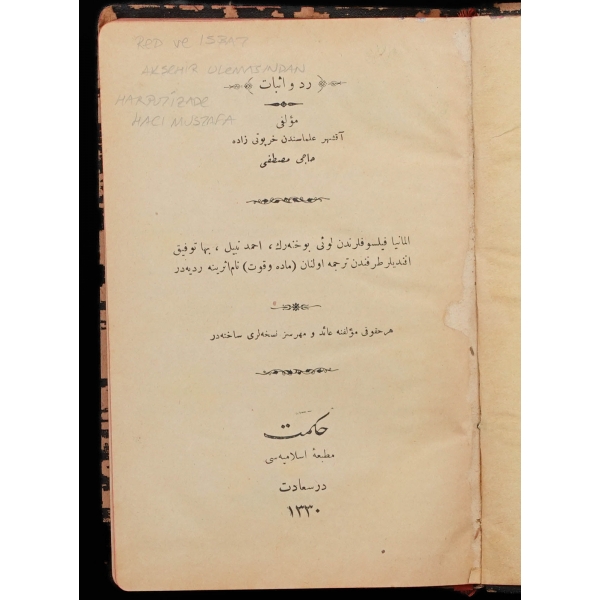 RED ve ISBAT
AKSEHİR ULEMASINDAN
HARPUTİZADE
HACI MUSTAFA
رد و اثبات
مؤلفی
آقشهر علماسندن خرپوتی زاده
حاجی مصطفی
المانیا فیلسوفلرندن لوئی بوخنه‌رك، احمد نبیل، بها توفیق
افندیلر طرفندن ترجمه اولنان (ماده وقوت) نام اثرینه ردیه‌در
هر حقوقی مؤلفنه عائد و مهرسز نسخه‌لری ساخته‌در
حكمت
مطبعهٔ اسلامیه‌سی
درسعادت
١٣٣٠